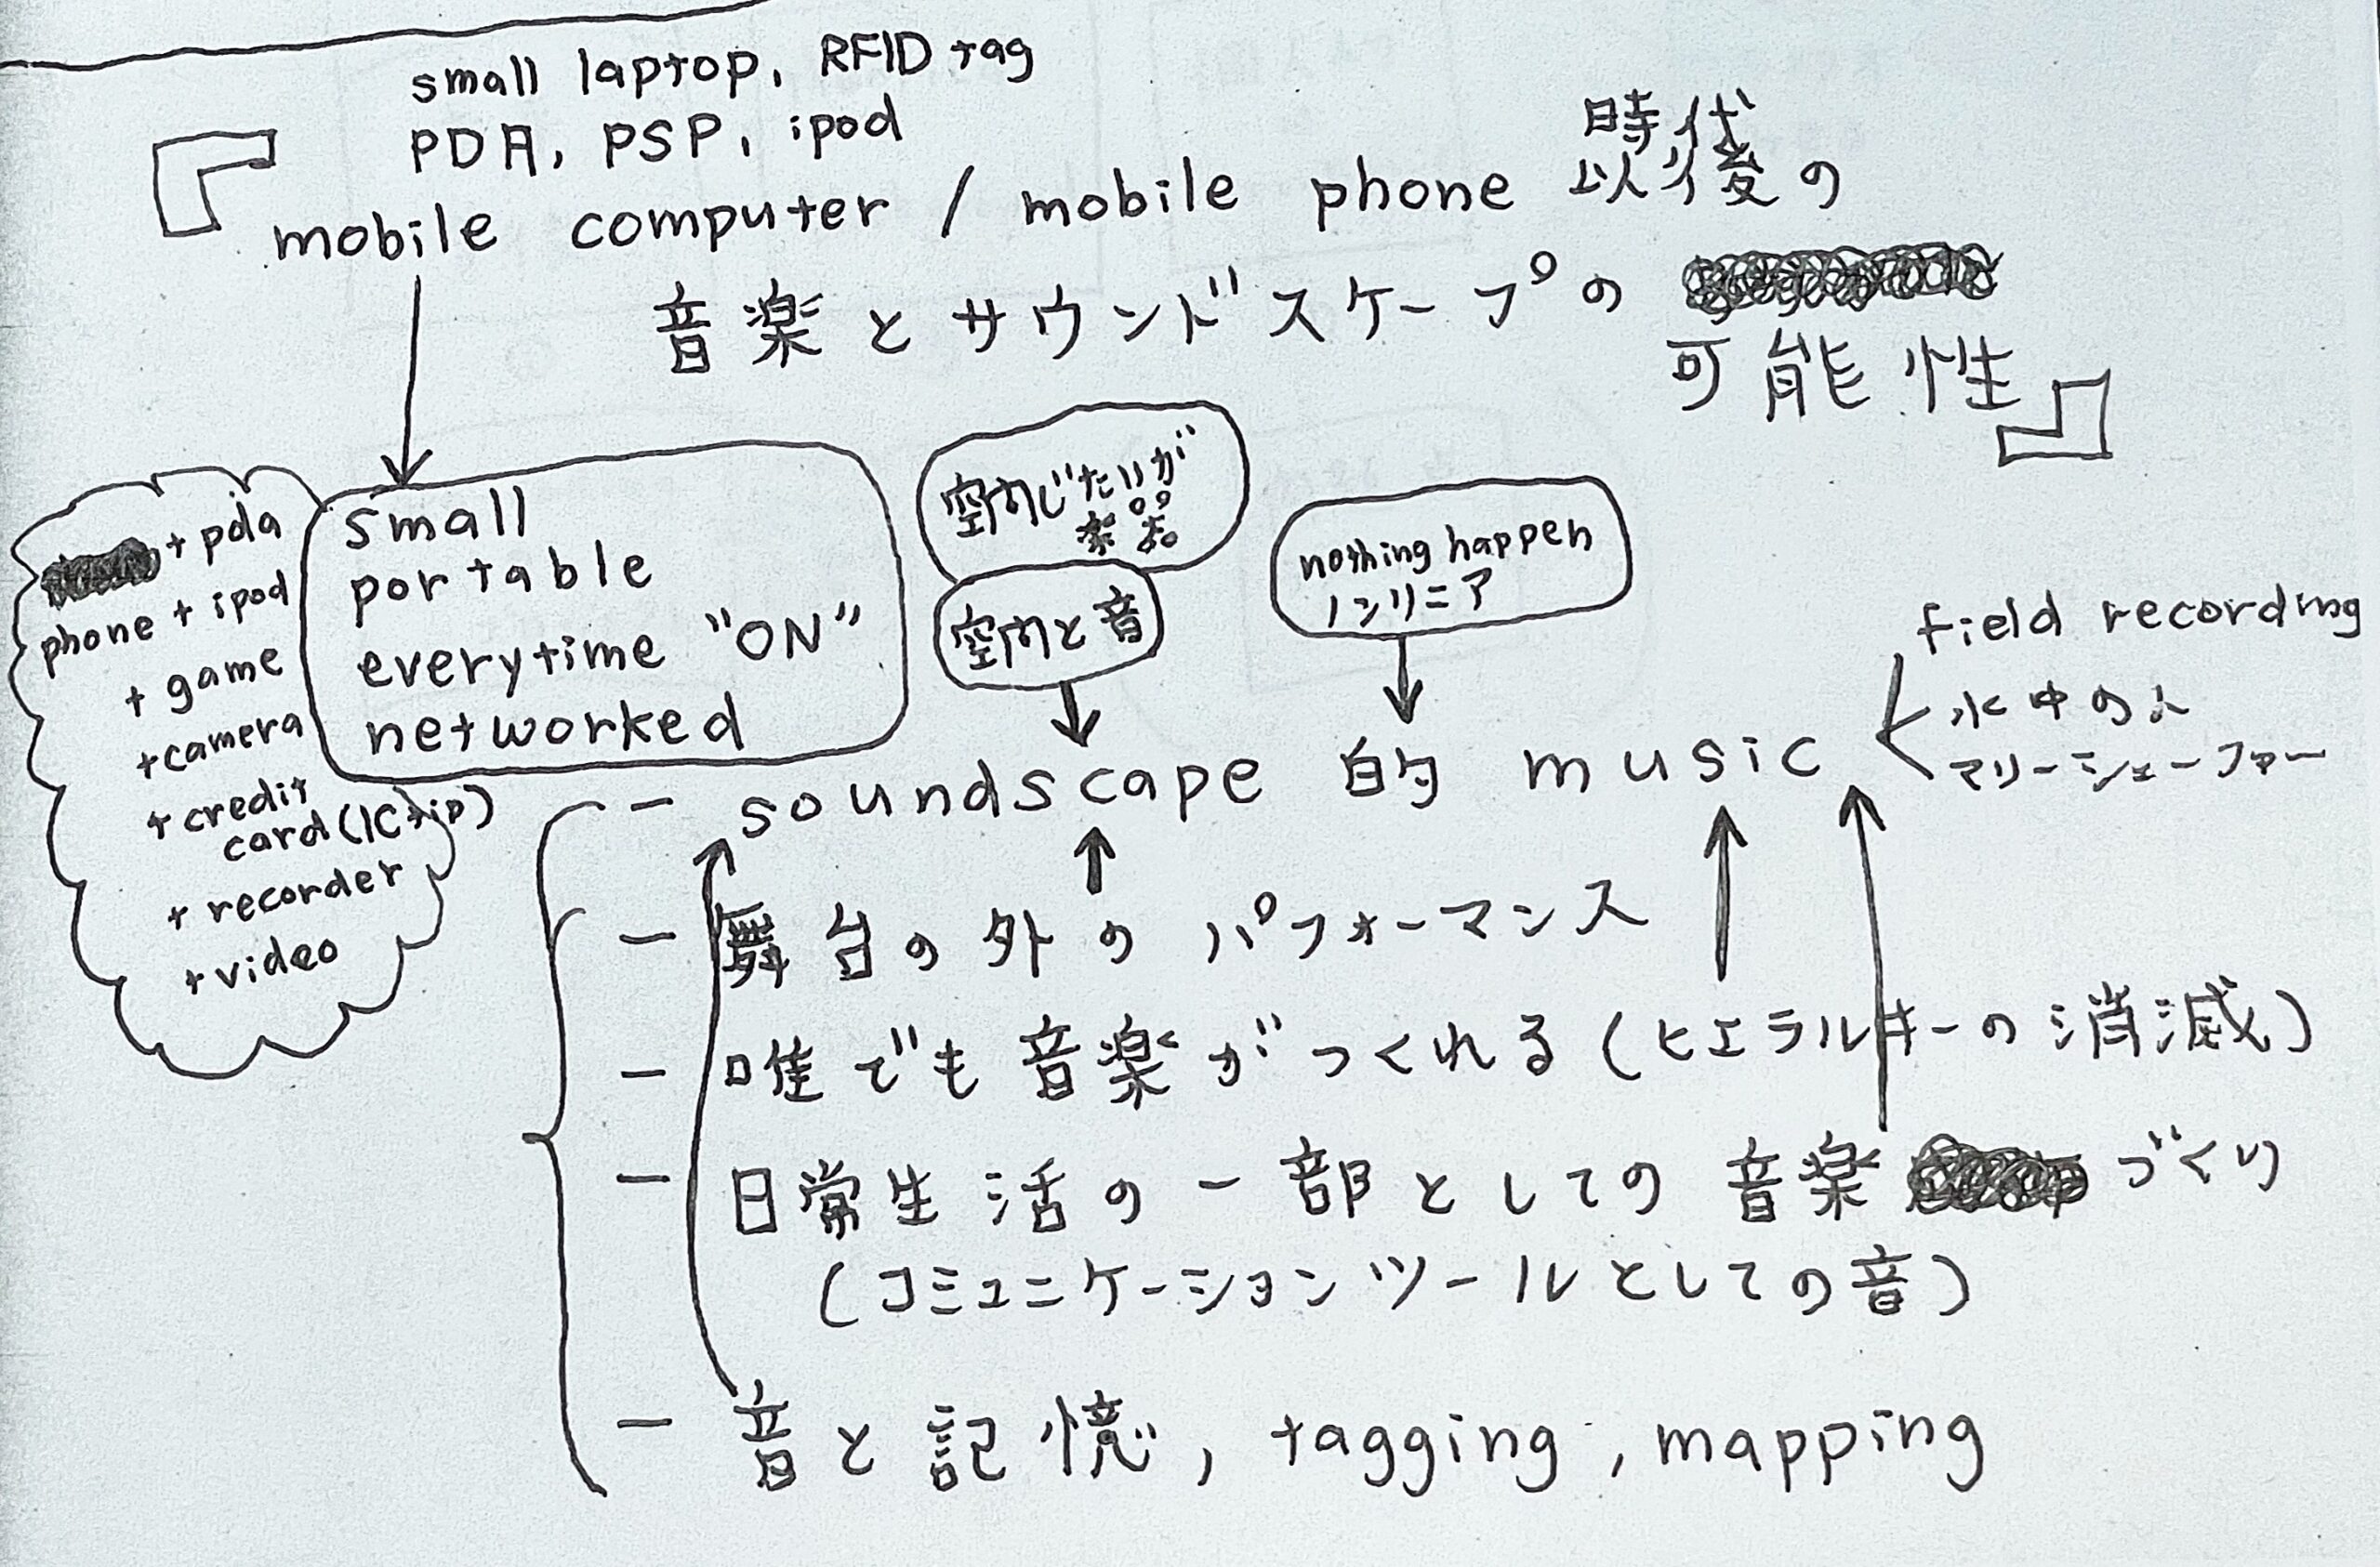 small laptop, RFID tag
PDA, PSP, ipod
時代
「mobile computer / mobile phone 以後の
音楽とサウンドスケープの
可能性」
+ pda
phone + ipod
+ game
+camera
+credit
card (IC
+ recorder
+video
small
portable
everytime "ON"
networked
空間じたいが
楽器
空間と音
nothing happen
ノンリニア
field recording
水中の人
マリーシェーファー
- soundscape 的 music
- 舞台の外のパフォーマンス
- 唯でも音楽がつくれる(ヒエラルキーの消滅)
- 日常生活の一部としての音楽づくり
(コミュニケーションツールとしての音)
- 音と記憶, tagging, mapping